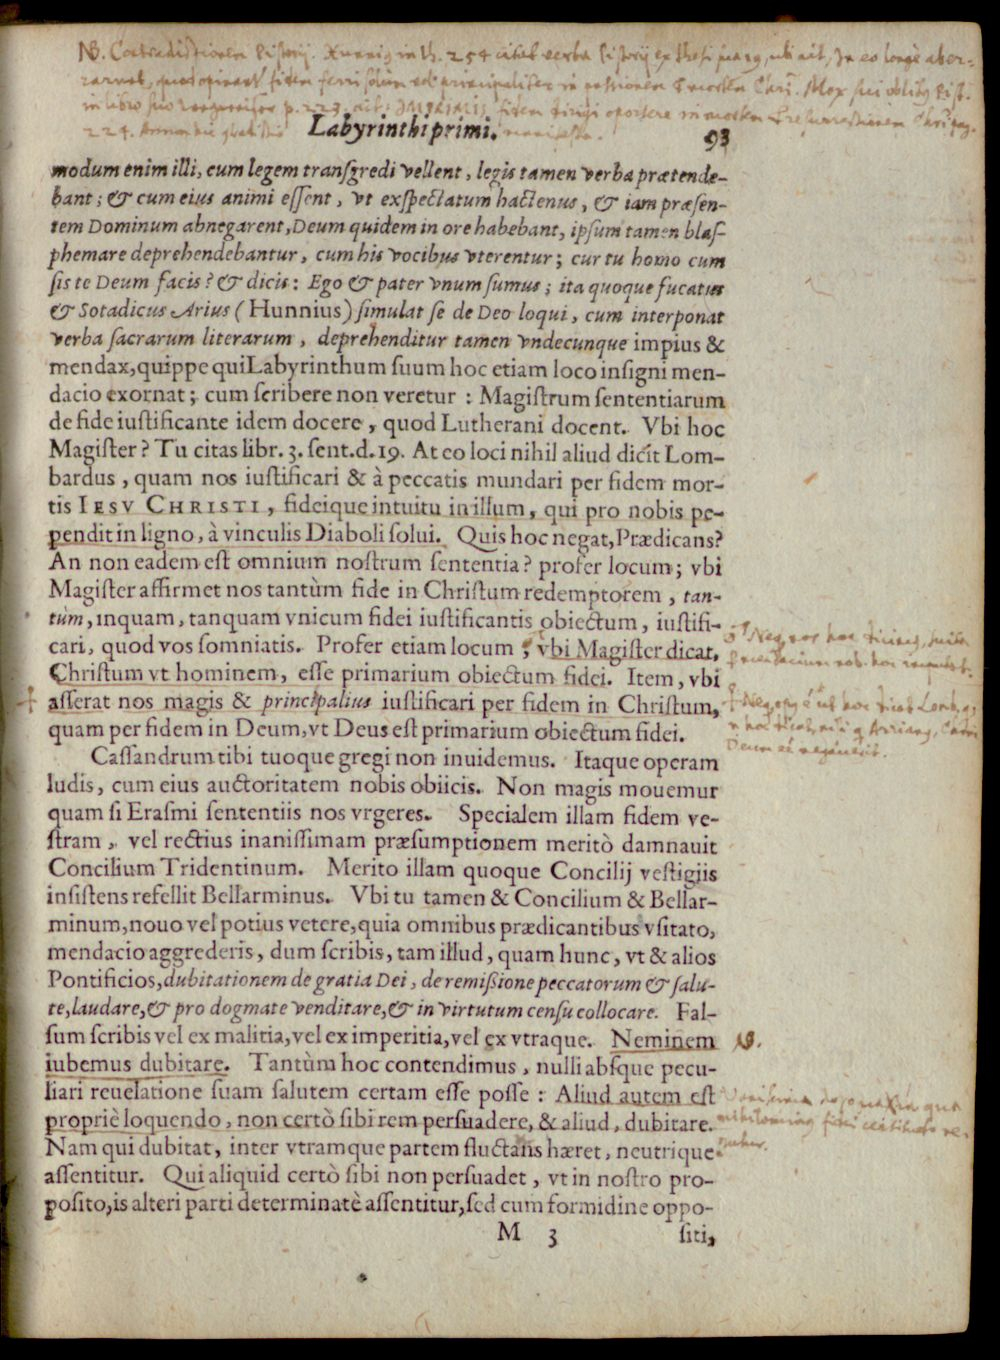 NB. Contradictionem Pistorij. Hunnius in th. 254 citat verba Pistorij ex thesi sua 19, ubi ait, In eo longè aber-
rarnt, fidem principaliter in passionem & mortem Chri. Mox sui oblitus Pist.
in libro suo p. 223. ait: fidem dirigi oportere in mortem & resurrectionem Christi pag.
224. manifesta.
Labyrinthi primi. 93
modum enim illi, cum legem transgredi vellent, legis tamen verba prætende-
bant; & cum eius animi essent, vt exspectatum hactenus, & iam præsen-
tem Dominum abnegarent, Deum quidem in ore habebant, ipsum tamen blas-
phemare deprehendebantur, cum his vocibus vterentur; cur tu homo cum
sis te Deum facis? & dicis: Ego & pater vnum sumus; ita quoque fucatus
& Sotadicus Arius (Hunnius) simulat se de Deo loqui, cum interponat
verba sacrarum literarum, deprehenditur tamen vndecunque impius &
mendax, quippe qui Labyrinthum suum hoc etiam loco insigni men-
dacio exornat; cum scribere non veretur: Magistrum sententiarum
de fide iustificante idem docere, quod Lutherani docent. Vbi hoc
Magister? Tu citas libr. 3. sent. d. 19. At eo loci nihil aliud dicit Lom-
bardus, quam nos iustificari & à peccatis mundari per fidem mor-
tis IESV CHRISTI, fideique intuitu in illum, qui pro nobis pe-
pendit in ligno, à vinculis Diaboli solui. Quis hoc negat, Prædicans?
An non eadem est omnium nostrum sententia? profer locum; vbi
Magister affirmet nos tantùm fide in Christum redemptorem, tan-
tùm, inquam, tanquam vnicum fidei iustificantis obiectum, iustifi-
cari, quod vos somniatis. Profer etiam locum; vbi Magister dicat,
Christum vt hominem, esse primarium obiectum fidei. Item, vbi
asserat nos magis & principalius iustificari per fidem in Christum,
quam per fidem in Deum, vt Deus est primarium obiectum fidei.
Cassandrum tibi tuoque gregi non inuidemus. Itaque operam
ludis, cum eius auctoritatem nobis obiicis. Non magis mouemur
quam si Erasmi sententiis nos vrgeres. Specialem illam fidem ve-
stram, vel rectius inanissimam præsumptionem meritò damnauit
Concilium Tridentinum. Merito illam quoque Concilij vestigiis
insistens refellit Bellarminus. Vbi tu tamen & Concilium & Bellar-
minum, nouo vel potius vetere, quia omnibus prædicantibus vsitato,
mendacio aggrederis, dum scribis, tam illud, quam hunc, vt & alios
Pontificios, dubitationem de gratia Dei, de remißione peccatorum & salu-
te, laudare, & pro dogmate venditare, & in virtutum censu collocare. Fal-
sum scribis vel ex malitia, vel ex imperitia, vel ex vtraque. Neminem
iubemus dubitare. Tantùm hoc contendimus, nulli absque pecu-
liari reuelatione suam salutem certam esse posse: Aliud autem est
propriè loquendo, non certò sibi rem persuadere, & aliud, dubitare.
Nam qui dubitat, inter vtramque partem fluctans hæret, neutrique
assentitur. Qui aliquid certò sibi non persuadet, vt in nostro pro-
posito, is alteri parti determinatè assentitur, sed cum formidine oppo-
M 3 siti,